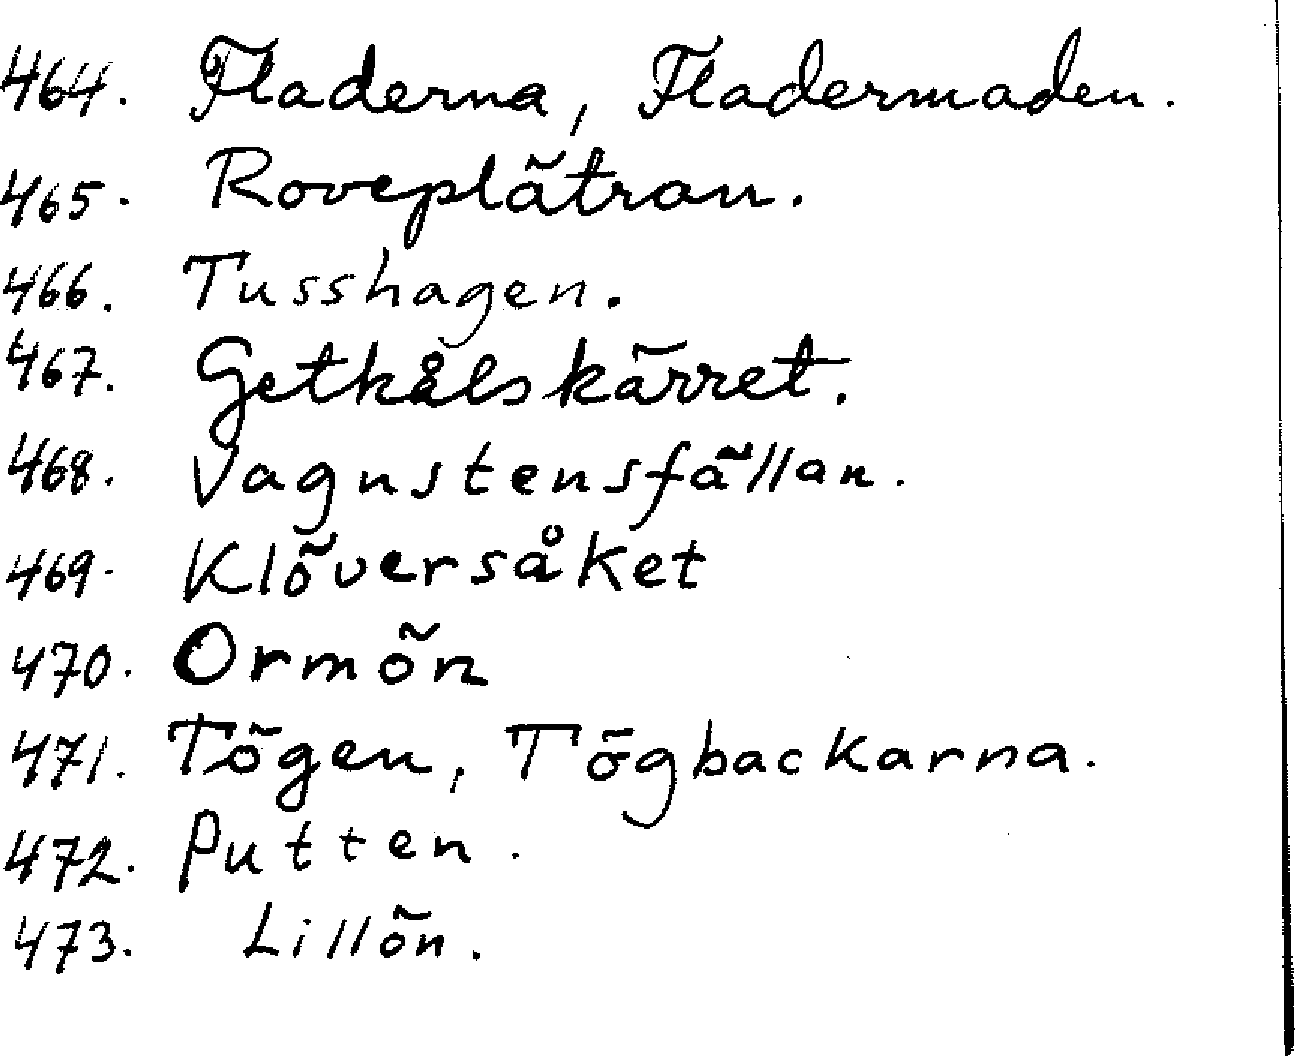 464. Fladerna, Fladermaden.
465. Roveplätran.
466. Tusshagen.
467. Getkålskärret.
468. Vagnstensfällan.
469. Klöversåket
470. Ormön
471. Tögen, Tögbackarna.
472. Putten.
473. Lillön.